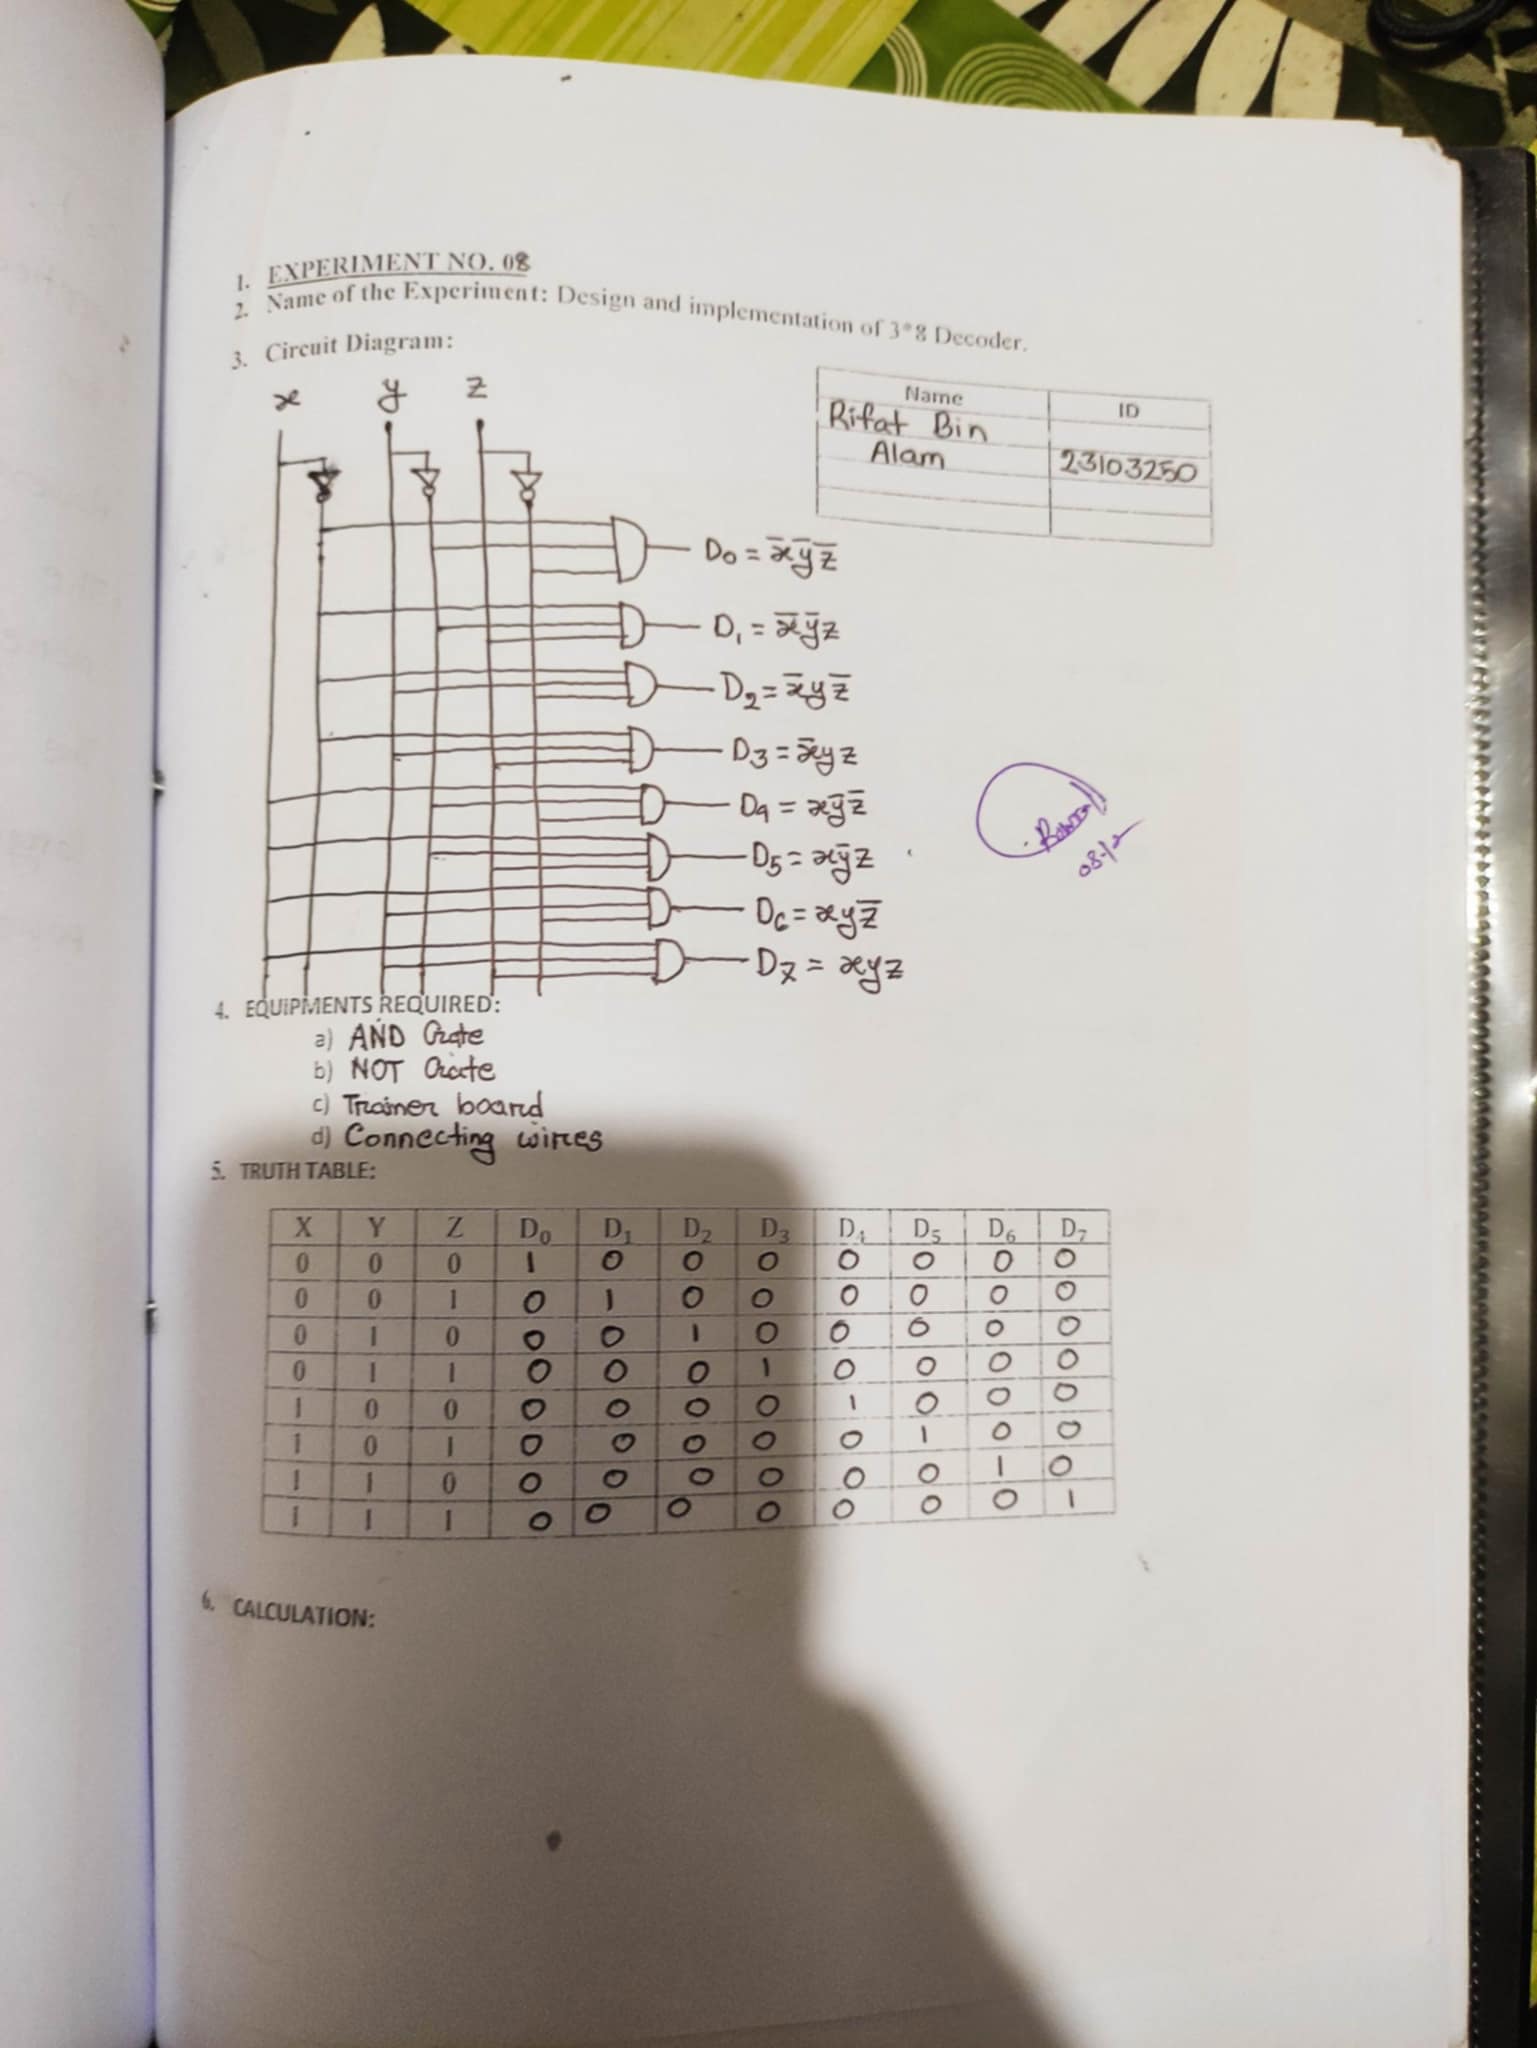 1. EXPERIMENT NO. 08
2. Name of the Experiment: Design and implementation of 3*8 Decoder.
3. Circuit Diagram:
x y z
Name ID
Rifat Bin
Alam 23103250
D0 = x̅y̅z̅
D1 = x̅y̅z
D2 = x̅yz̅
D3 = x̅yz
D4 = xy̅z̅
D5 = xy̅z
D6 = xyz̅
D7 = xyz
08/12
4. EQUIPMENTS REQUIRED:
a) AND Gate
b) NOT Gate
c) Trainer board
d) Connecting wires
5. TRUTH TABLE:
X Y Z D0 D1 D2 D3 D4 D5 D6 D7
0 0 0 1 0 0 0 0 0 0 0
0 0 1 0 1 0 0 0 0 0 0
0 1 0 0 0 1 0 0 0 0 0
0 1 1 0 0 0 1 0 0 0 0
1 0 0 0 0 0 0 1 0 0 0
1 0 1 0 0 0 0 0 1 0 0
1 1 0 0 0 0 0 0 0 1 0
1 1 1 0 0 0 0 0 0 0 1
6. CALCULATION: